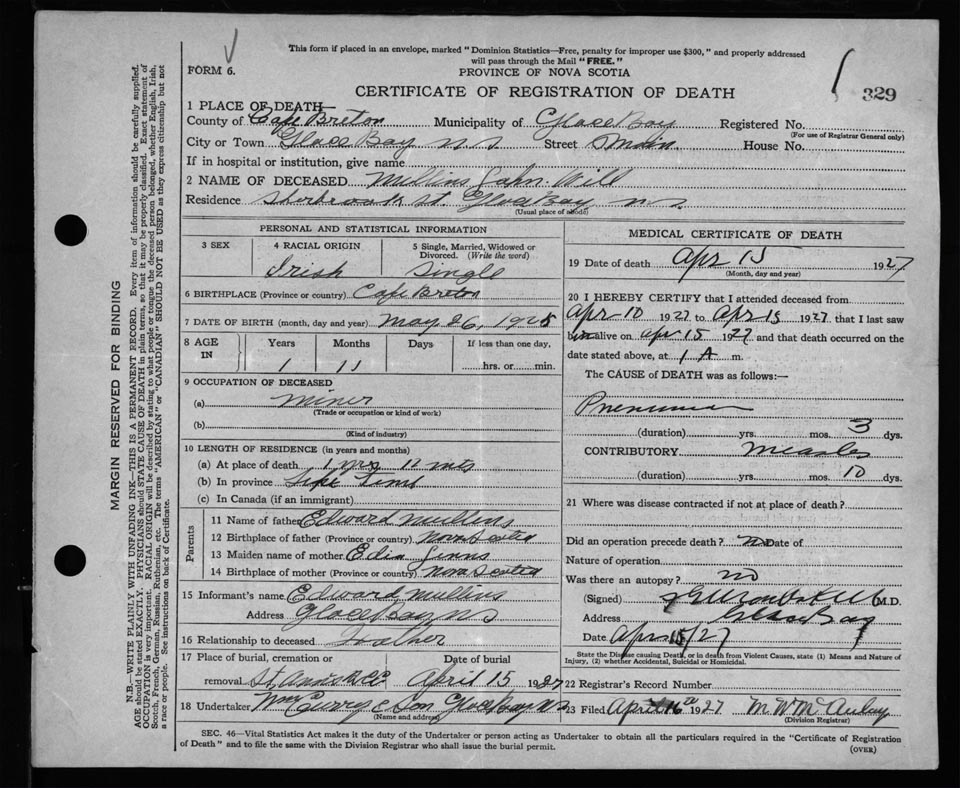 This form if placed in an envelope, marked "Dominion Statistics—Free, penalty for improper use $300," and properly addressed
will pass through the Mail "FREE."
FORM 6.
PROVINCE OF NOVA SCOTIA
CERTIFICATE OF REGISTRATION OF DEATH
329
1 PLACE OF DEATH—
County of Cape Breton Municipality of Glace Bay Registered No.
(For use of Registrar General only)
City or Town Glace Bay N S Street House No.
If in hospital or institution, give name
2 NAME OF DECEASED Mullins John Will
Residence Sherbrook St. Glace Bay N S.
(Usual place of abode)
PERSONAL AND STATISTICAL INFORMATION
3 SEX
4 RACIAL ORIGIN
5 Single, Married, Widowed or Divorced. (Write the word)
Irish
Single
6 BIRTHPLACE (Province or country) Cape Breton
7 DATE OF BIRTH (month, day and year) May 26, 1925
8 AGE IN
Years Months Days If less than one day,
1 11 hrs. or min.
9 OCCUPATION OF DECEASED
(a) Miner
(Trade or occupation or kind of work)
(b)
(Kind of industry)
10 LENGTH OF RESIDENCE (in years and months)
(a) At place of death 1 yrs 11 mts
(b) In province Life Time
(c) In Canada (if an immigrant)
Parents
11 Name of father Edward Mullins
12 Birthplace of father (Province or country) Nova Scotia
13 Maiden name of mother
14 Birthplace of mother (Province or country) Nova Scotia
15 Informant's name Edward Mullins
Address Glace Bay N S
16 Relationship to deceased Father
17 Place of burial, cremation or removal
Date of burial
April 15 1927
18 Undertaker Wm Curry & Son Glace Bay N S
(Name and address)
MEDICAL CERTIFICATE OF DEATH
19 Date of death Apr 15 1927
(Month, day and year)
20 I HEREBY CERTIFY that I attended deceased from
Apr 10 1927 to Apr 15 1927 that I last saw
him alive on Apr 15 1927 and that death occurred on the
date stated above, at 1 A m.
The CAUSE of DEATH was as follows:—
Pneumonia
(duration) yrs. mos. 3 dys.
CONTRIBUTORY Measles
(duration) yrs. mos. 10 dys.
21 Where was disease contracted if not at place of death?
Did an operation precede death? No Date of
Nature of operation
Was there an autopsy? no
(Signed) M.D.
Address Glace Bay
Date Apr 15/27
State the Disease causing Death, or in death from Violent Causes, state (1) Means and Nature of
Injury, (2) whether Accidental, Suicidal or Homicidal.
22 Registrar's Record Number
23 Filed April 16th 1927 M W McAulay
(Division Registrar)
SEC. 46—Vital Statistics Act makes it the duty of the Undertaker or person acting as Undertaker to obtain all the particulars required in the "Certificate of Registration
of Death" and to file the same with the Division Registrar who shall issue the burial permit.
(OVER)
MARGIN RESERVED FOR BINDING
N.B.—WRITE PLAINLY WITH UNFADING INK—THIS IS A PERMANENT RECORD. Every item of information should be carefully supplied.
AGE should be stated EXACTLY. PHYSICIANS should STATE CAUSE OF DEATH in plain terms, so that it may be properly classified. Exact statement of
OCCUPATION is very important. RACIAL ORIGIN will be described by stating to what people or tongue the deceased person belonged, whether English, Irish,
Scotch, French, German, Russian, Ruthenian, etc. The terms "AMERICAN" or "CANADIAN" SHOULD NOT BE USED as they express citizenship but not
a race or people. See instructions on back of Certificate.